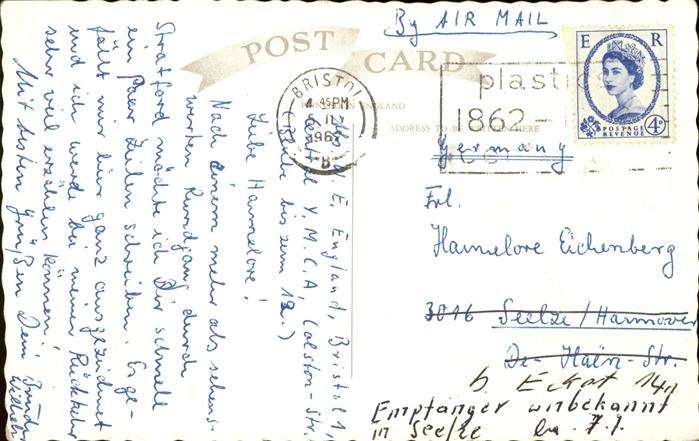 By AIR MAIL
POST CARD
BRISTOL
4 45PM
1962
B
plasti
1862-
E R
POSTAGE
REVENUE
4D
ENGLAND
ADDRESS TO BE
Germany
Frl.
Hannelore Eichenberg
3016 Seelze/Hannover
De-Haën-Str.
b. Eckot 14
Empfänger unbekannt
in Seelze
England, Bristol 1
Central Y.M.C.A, Colston-Str.
(bis zum 12.)
Liebe Hannelore!
Nach einem mehr als sehens-
werten Rundgang durch
Stratford möchte ich Dir schnell
ein paar Zeilen schreiben. Es ge-
fällt mir hier ganz ausgezeichnet
und ich werde bei meiner Rückkehr
sehr viel erzählen können!
Mit besten Grüßen Dein